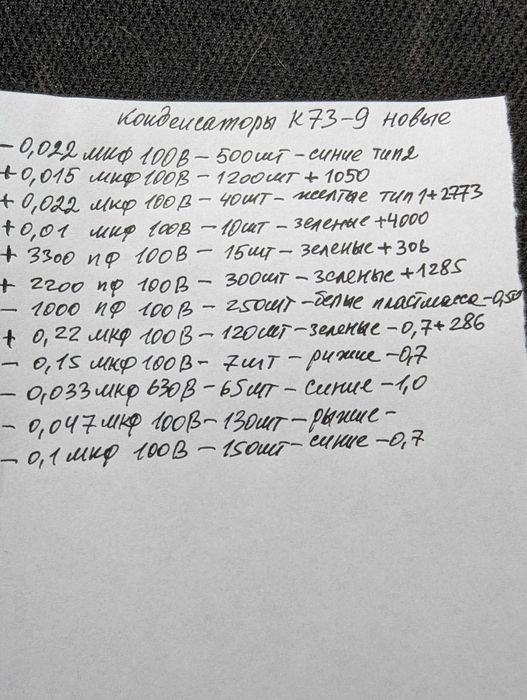 Конденсаторы К73-9 новые
- 0,022 мкф 100В - 500шт - синие тип2
+ 0,015 мкф 100В - 1200шт + 1050
+ 0,022 мкф 100В - 40шт - желтые тип1+2773
+ 0,01 мкф 100В - 10шт - зеленые +4000
+ 3300 пф 100В - 15шт - зеленые + 306
+ 2200 пф 100В - 300шт - зеленые +1285
- 1000 пф 100В - 250шт - белые пластмасса - 0,50
+ 0,22 мкф 100В - 120шт - зеленые - 0,7 + 286
- 0,15 мкф 100В - 7шт - рижие - 0,7
- 0,033 мкф 630В - 65шт - синие - 1,0
- 0,047 мкф 100В - 130шт - рыжие -
- 0,1 мкф 100В - 150шт - синие - 0,7